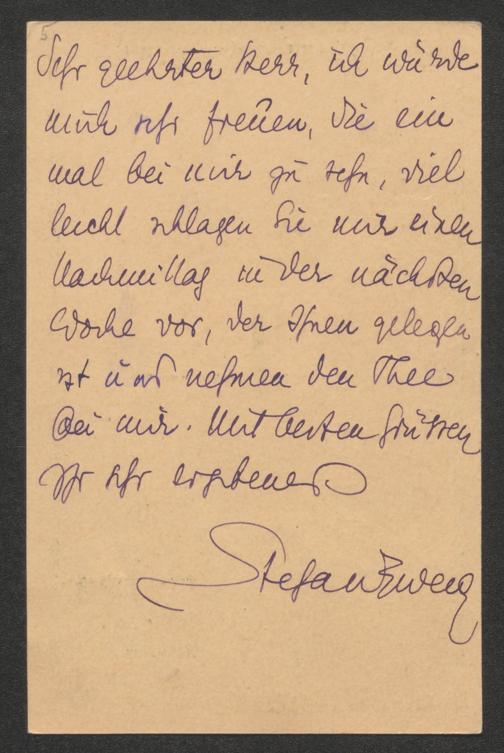 5
Sehr geehrter Herr, ich würde
mich sehr freuen, Sie ein
mal bei mir zu sehn, viel
leicht schlagen Sie mir einen
Nachmittag in der nächsten
Woche vor, der Ihnen gelegen
ist und nehmen den Thee
bei mir. Mit besten Grüssen
Ihr sehr ergebener
Stefan Zweig